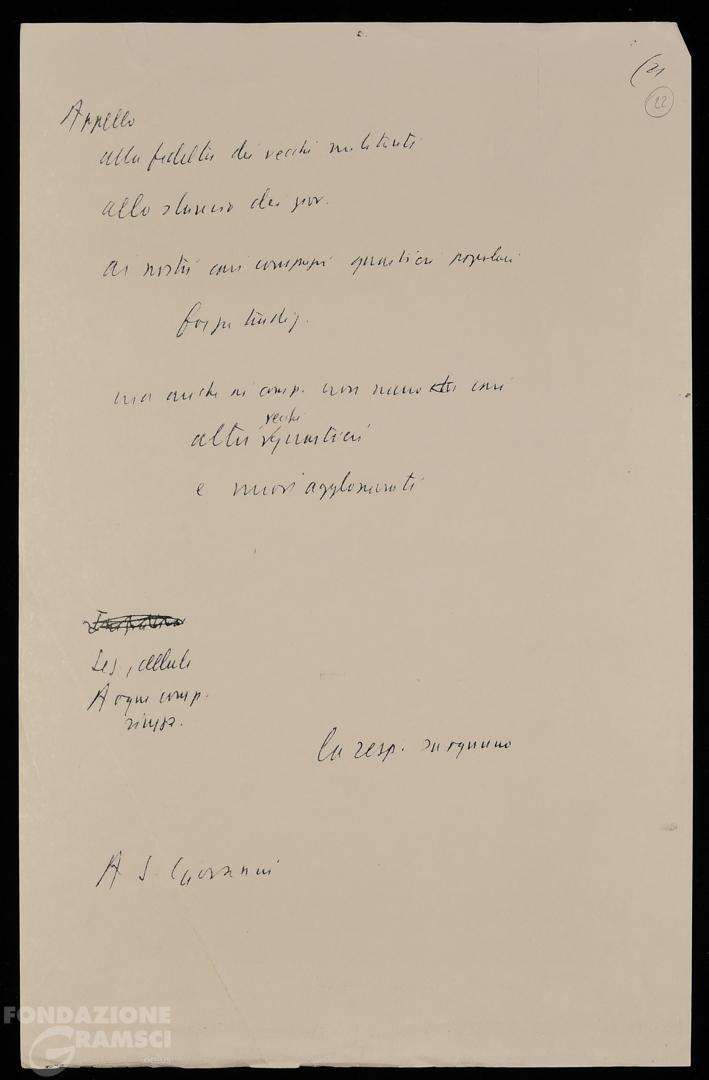 (21
22
Appello
alla fedeltà dei vecchi militanti
allo slancio dei giov.
ai nostri cari compagni quartieri popolari
ma anche ai comp. non meno cari
vecchi
altri quartieri
e nuovi agglomerati
Sez, cellule
A ogni comp.
La resp. su ognuno
A S. Giovanni
FONDAZIONE
GRAMSCI